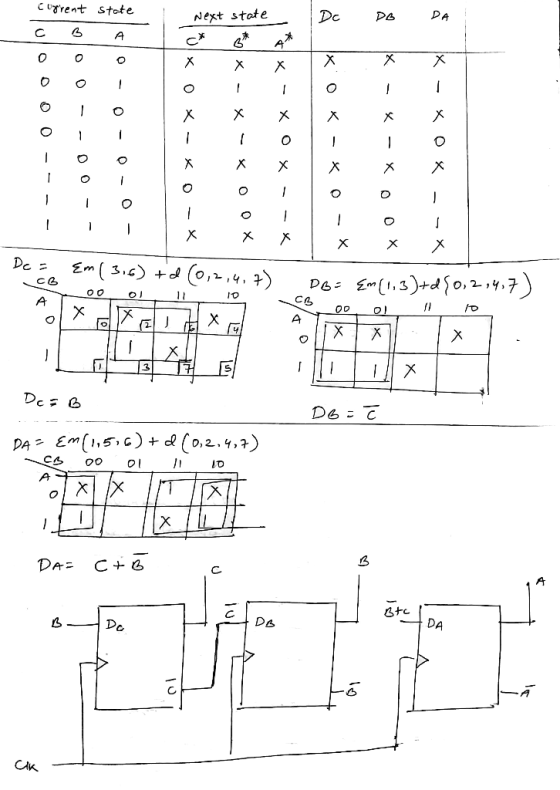 Current state Next state DC DB DA
C B A C* B* A*
0 0 0 X X X X X X
0 0 1 0 1 1 0 1 1
0 1 0 X X X X X X
0 1 1 1 1 0 1 1 0
1 0 0 X X X X X X
1 0 1 0 0 1 0 0 1
1 1 0 1 0 1 1 0 1
1 1 1 X X X X X X
DC = Σm(3,6) + d(0,2,4,7)
CB 00 01 11 10
A
0 X 0 X 2 1 6 X 4
1 1 1 3 X 7 5
DC = B
DB = Σm(1,3)+d(0,2,4,7)
CB 00 01 11 10
A
0 X X X
1 1 1 X
DB = C̅
DA = Σm(1,5,6) + d(0,2,4,7)
CB 00 01 11 10
A
0 X X 1 X
1 1 X 1
DA = C + B̅
C B A
B DC C̅ DB B̅+C DA
C̅ B̅ A̅
Clk